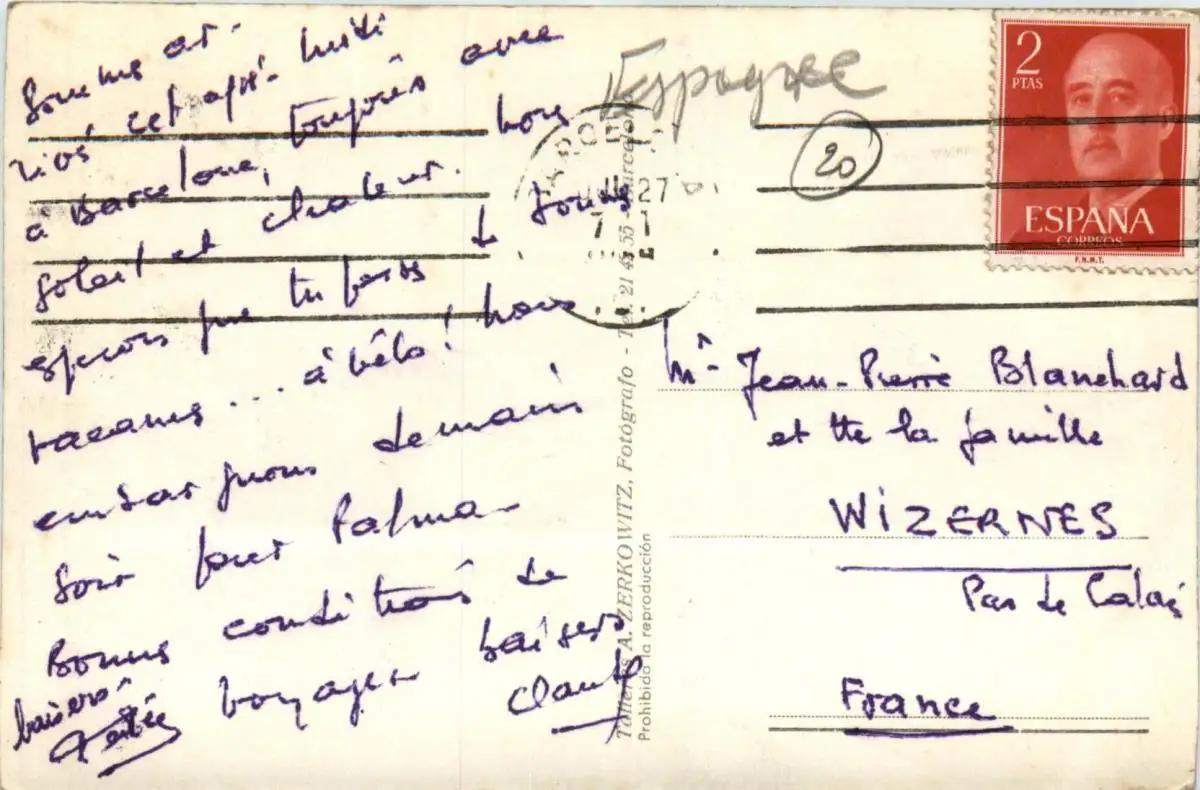 Sommes ar-
rivés cet après-midi
à Barcelone, toujours avec
soleil et chaleur. Nous
espérons que tu fais de bonnes
vacances ... à vélo! Nous
embarquons demain
soir pour Palma-
Bonnes conditions de
voyage- baisers
Claude
baisers-
Espagne
20
2
PTAS
ESPAÑA
CORREOS
F.N.M.T.
27
Talleres A. ZERKOWITZ, Fotógrafo - Tel. 21 45 55 - Barcelona
Prohibida la reproducción
Mr Jean-Pierre Blanchard
et tte la famille
WIZERNES
Pas de Calais
France